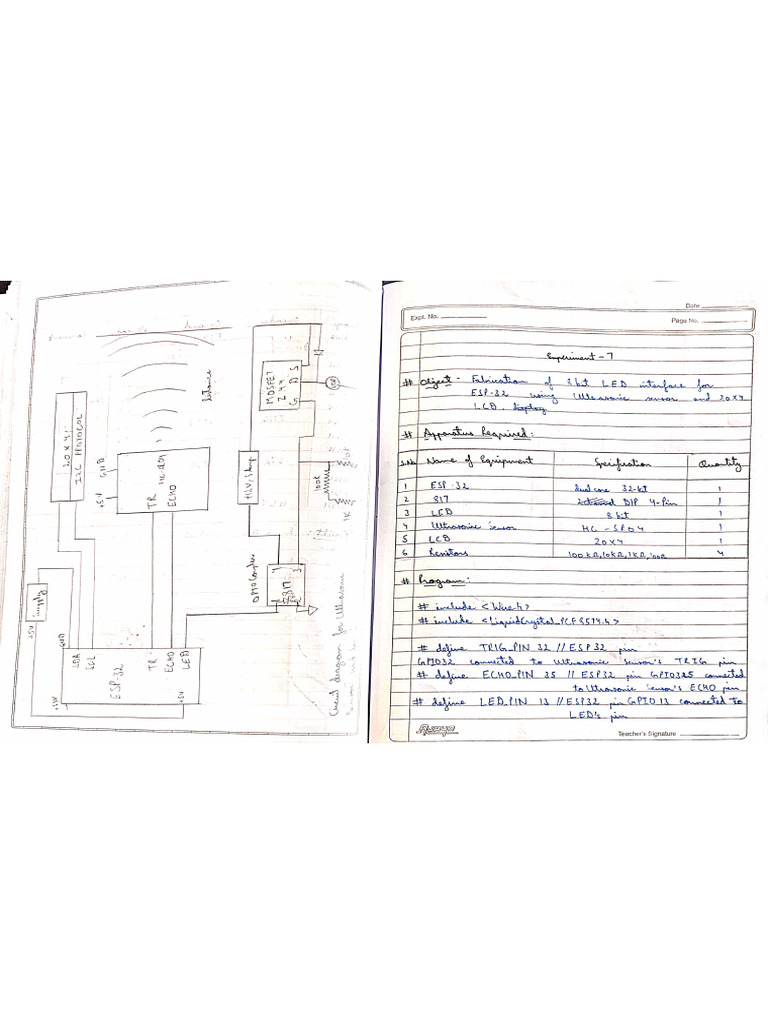 +5V
Supply
+5V
GND
20 x 4
I2C PROTOCOL
SDA
SCL
ESP-32
TR
ECHO
LED
+5V
+5V
GND
TR HC-SR04
ECHO
distance
+12V/5Amp
817
1
3
MOSFET
Z44
G D S
100R
1K
Circuit diagram for Ultrasonic
Date
Expt. No.
Page No.
Experiment - 7
# Object - Fabrication of 8 bit LED interface for
ESP-32 using Ultrasonic sensor and 20x4
LCD. Display
# Apparatus Required:
S.No. Name of Equipment Specification Quantity
1 ESP-32 dual core 32-bit 1
2 817 2 channel DIP 4-Pin 1
3 LED 8 bit 1
4 Ultrasonic Sensor HC-SR04 1
5 LCD 20x4 1
6 Resistors 100KR, 10KR, 1KR, 100R 4
# Program:
# include <Wire.h>
# include <LiquidCrystal_PCF8574.h>
# define TRIG_PIN 32 // ESP32 pin
GPIO32 connected to Ultrasonic Sensor's TRIG pin
# define ECHO_PIN 35 // ESP32 pin GPIO325 connected
to Ultrasonic Sensor's ECHO pin
# define LED_PIN 13 // ESP32 pin GPIO 13 connected to
LED's pin
Teacher's Signature